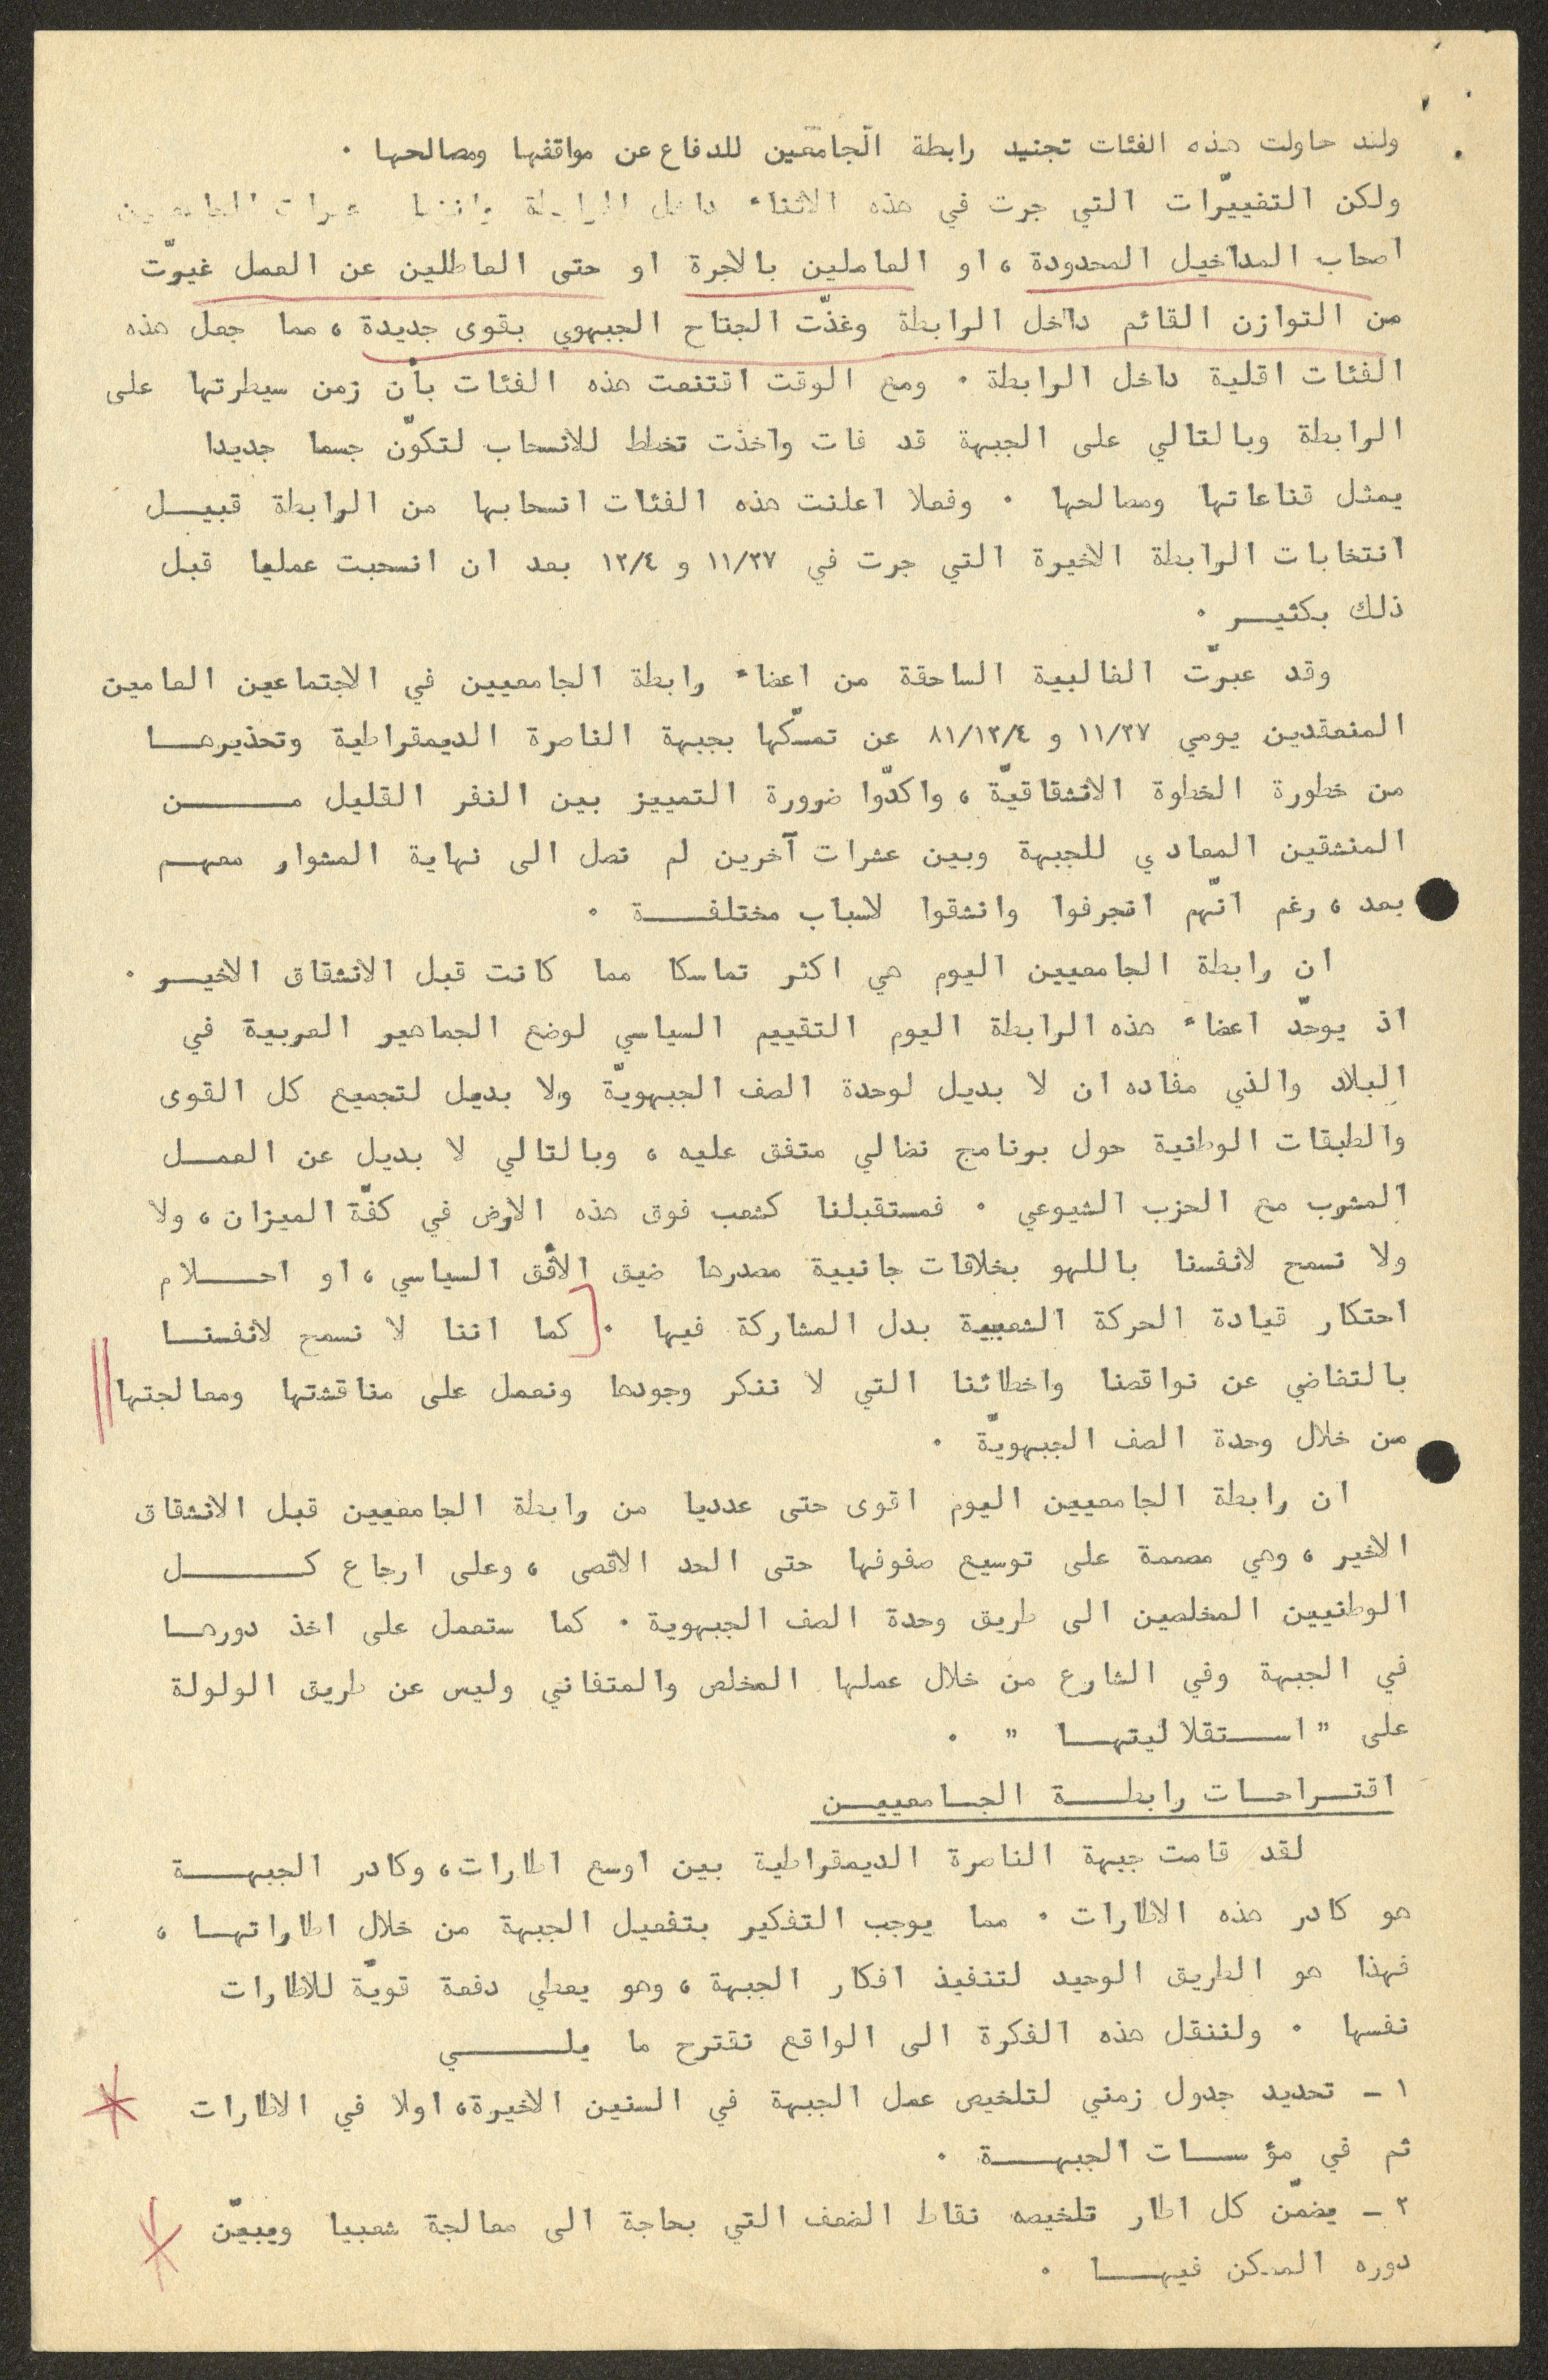 ولقد حاولت هذه الفئات تجنيد رابطة الجامعيين للدفاع عن مواقفها ومصالحها .
ولكن التغييرّات التي جرت في هذه الاثناء داخل الرابطة عشرات الجامعيين
اصحاب المداخيل المحدودة ، او العاملين بالاجرة او حتى العاطلين عن العمل غيرّت
من التوازن القائم داخل الرابطة وغذّت الجناح الجبهوي بقوى جديدة ، مما جعل هذه
الفئات اقلية داخل الرابطة . ومع الوقت اقتنعت هذه الفئات بأن زمن سيطرتها على
الرابطة وبالتالي على الجبهة قد فات واخذت تخطط للانسحاب لتكوّن جسما جديدا
يمثل قناعاتها ومصالحها . وفعلا اعلنت هذه الفئات انسحابها من الرابطة قبيل
انتخابات الرابطة الاخيرة التي جرت في ١١/٢٧ و ١٢/٤ بعد ان انسحبت عمليا قبل
ذلك بكثير .
وقد عبرّت الغالبية الساحقة من اعضاء رابطة الجامعيين في الاجتماعين العامين
المنعقدين يومي ١١/٢٧ و ٨١/١٢/٤ عن تمسّكها بجبهة الناصرة الديمقراطية وتحذيرها
من خطورة الخطوة الانشقاقيّة ، واكدّوا ضرورة التمييز بين النفر القليل من
المنشقين المعادي للجبهة وبين عشرات آخرين لم نصل الى نهاية المشوار معهم
بعد ، رغم انّهم انجرفوا وانشقوا لاسباب مختلفة .
ان رابطة الجامعيين اليوم هي اكثر تماسكا مما كانت قبل الانشقاق الاخير .
اذ يوحّد اعضاء هذه الرابطة اليوم التقييم السياسي لوضع الجماهير العربية في
البلاد والذي مفاده ان لا بديل لوحدة الصف الجبهويّة ولا بديل لتجميع كل القوى
والطبقات الوطنية حول برنامج نضالي متفق عليه ، وبالتالي لا بديل عن العمل
المشرب مع الحزب الشيوعي . فمستقبلنا كشعب فوق هذه الارض في كفّة الميزان ، ولا
ولا نسمح لانفسنا باللهو بخلافات جانبية مصدرها ضيق الأفق السياسي ، او احلام
احتكار قيادة الحركة الشعبية بدل المشاركة فيها . [ كما اننا لا نسمح لانفسنا
بالتغاضي عن نواقصنا واخطائنا التي لا ننكر وجودها ونعمل على مناقشتها ومعالجتها
من خلال وحدة الصف الجبهويّة .
ان رابطة الجامعيين اليوم اقوى حتى عدديا من رابطة الجامعيين قبل الانشقاق
الاخير ، وهي مصممة على توسيع صفوفها حتى الحد الاقصى ، وعلى ارجاع كل
الوطنيين المخلصين الى طريق وحدة الصف الجبهوية . كما ستعمل على اخذ دورها
في الجبهة وفي الشارع من خلال عملها المخلص والمتفاني وليس عن طريق الولولة
على " استقلاليتها " .
اقتراحات رابطة الجامعيين
لقد قامت جبهة الناصرة الديمقراطية بين اوسع اطارات ، وكادر الجبهة
هو كادر هذه الاطارات . مما يوجب التفكير بتفعيل الجبهة من خلال اطاراتها ،
فهذا هو الطريق الوحيد لتنفيذ افكار الجبهة ، وهو يعطي دفعة قويّة للاطارات
نفسها . ولننقل هذه الفكرة الى الواقع نقترح ما يلي
١ - تحديد جدول زمني لتلخيص عمل الجبهة في السنين الاخيرة ، اولا في الاطارات
ثم في مؤسسات الجبهة .
٢ - يضمّن كل اطار تلخيصه نقاط الضعف التي بحاجة الى معالجة شعبيا ويبيّن
دوره الممكن فيها .